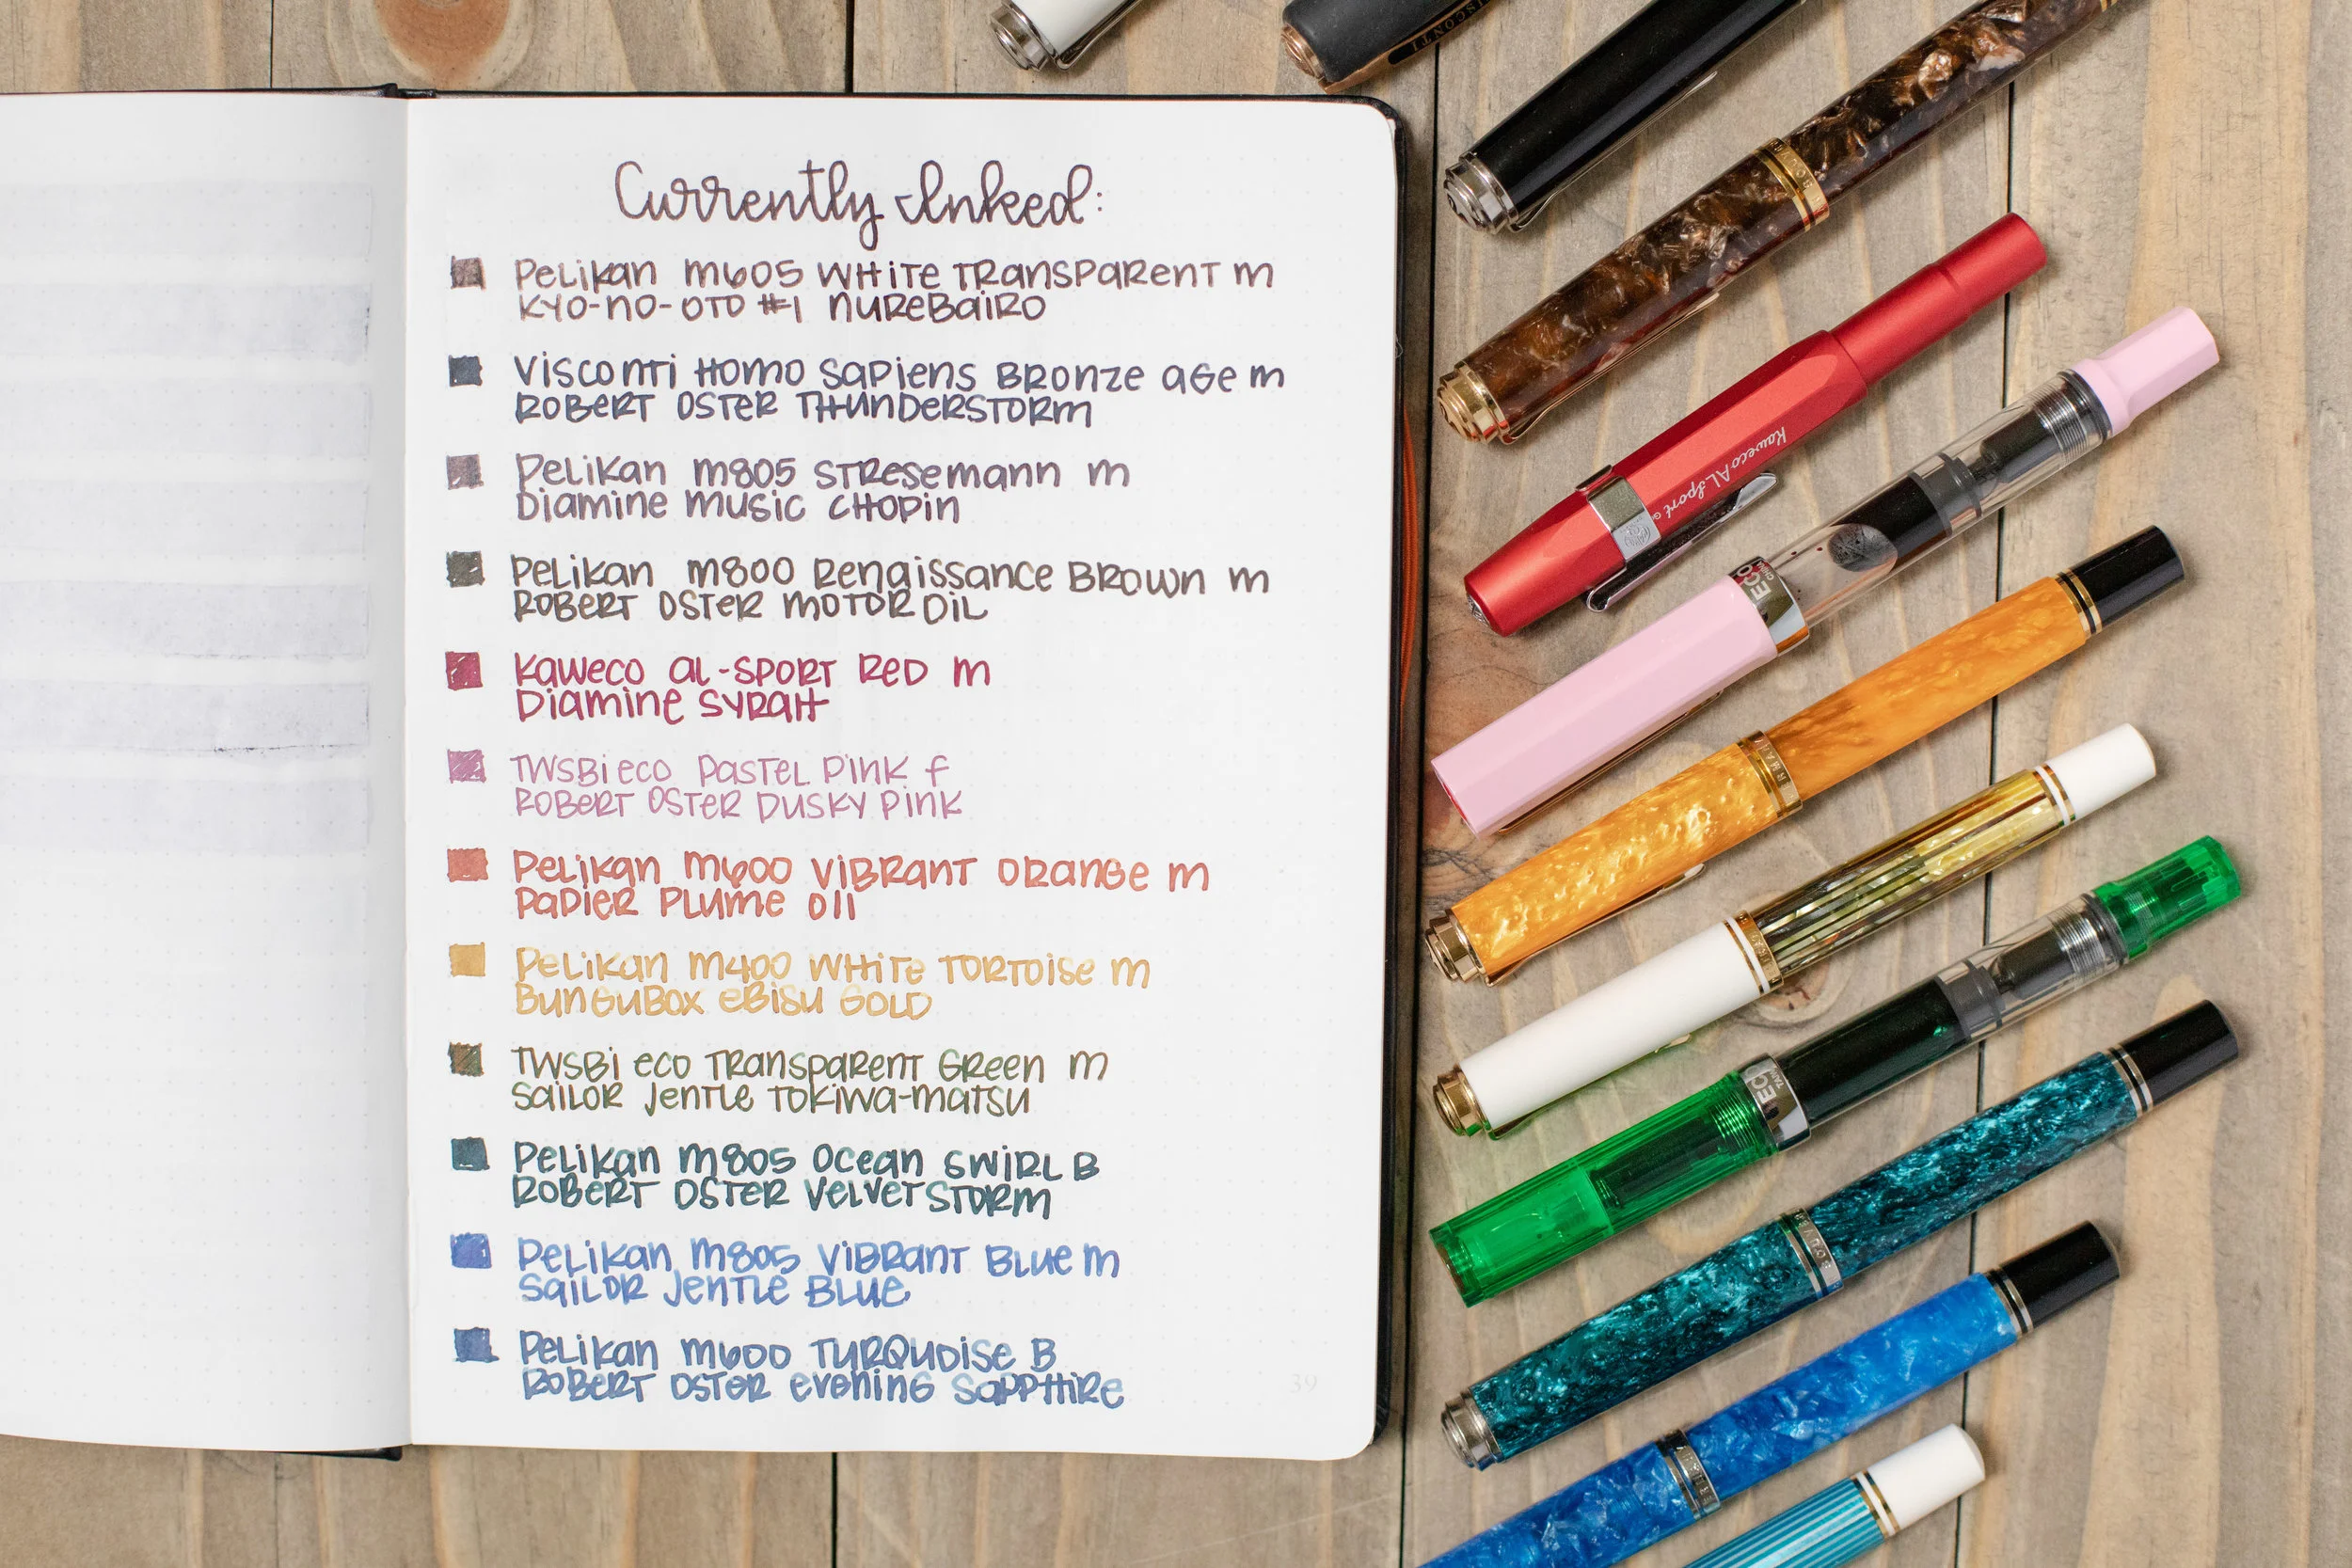 Currently Inked:
Pelikan M605 White Transparent M
Kyo-no-oto #1 Nurebairo
Visconti Homo Sapiens Bronze Age M
Robert Oster Thunderstorm
Pelikan M805 Stresemann M
Diamine Music Chopin
Pelikan M800 Renaissance Brown M
Robert Oster Motor Oil
Kaweco AL-Sport Red M
Diamine Syrah
TWSBI ECO Pastel Pink F
Robert Oster Dusky Pink
Pelikan M600 Vibrant Orange M
Papier Plume 011
Pelikan M400 White Tortoise M
Bungubox Ebisu Gold
TWSBI ECO Transparent Green M
Sailor Jentle Tokiwa-Matsu
Pelikan M805 Ocean Swirl B
Robert Oster Velvet Storm
Pelikan M805 Vibrant Blue M
Sailor Jentle Blue
Pelikan M600 Turquoise B
Robert Oster Evening Sapphire
39
VISCONTI
Kaweco AL Sport
ECO
ECO